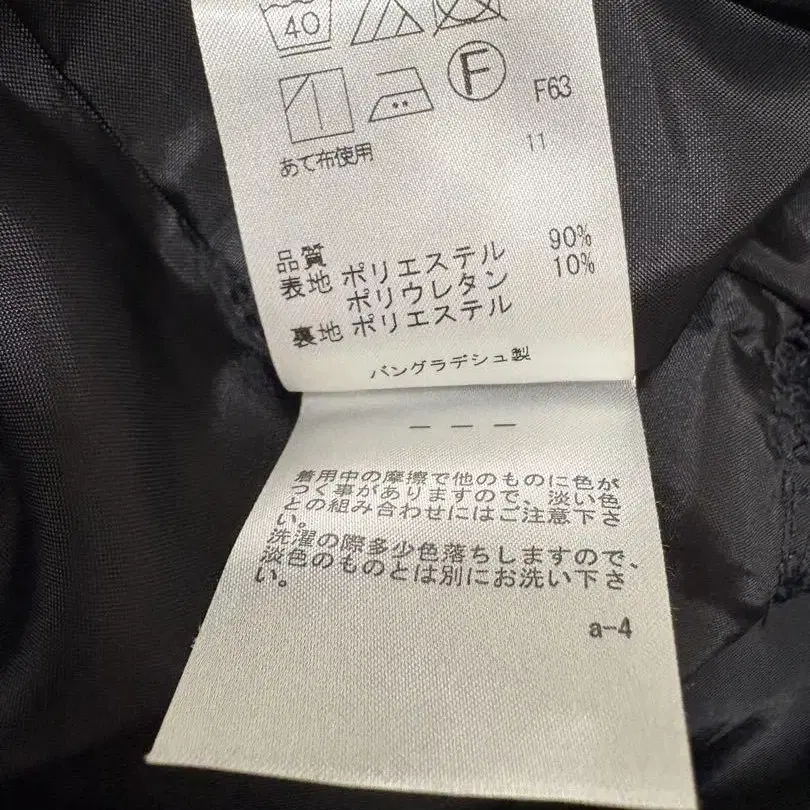 40
F
F63
あて布使用
11
品質
表地 ポリエステル 90%
ポリウレタン 10%
裏地 ポリエステル
バングラデシュ製
― ― ―
着用中の摩擦で他のものに色が
つく事がありますので、淡い色
との組み合わせにはご注意下さ
い。
洗濯の際多少色落ちしますので、
淡色のものとは別にお洗い下さ
い。
a-4